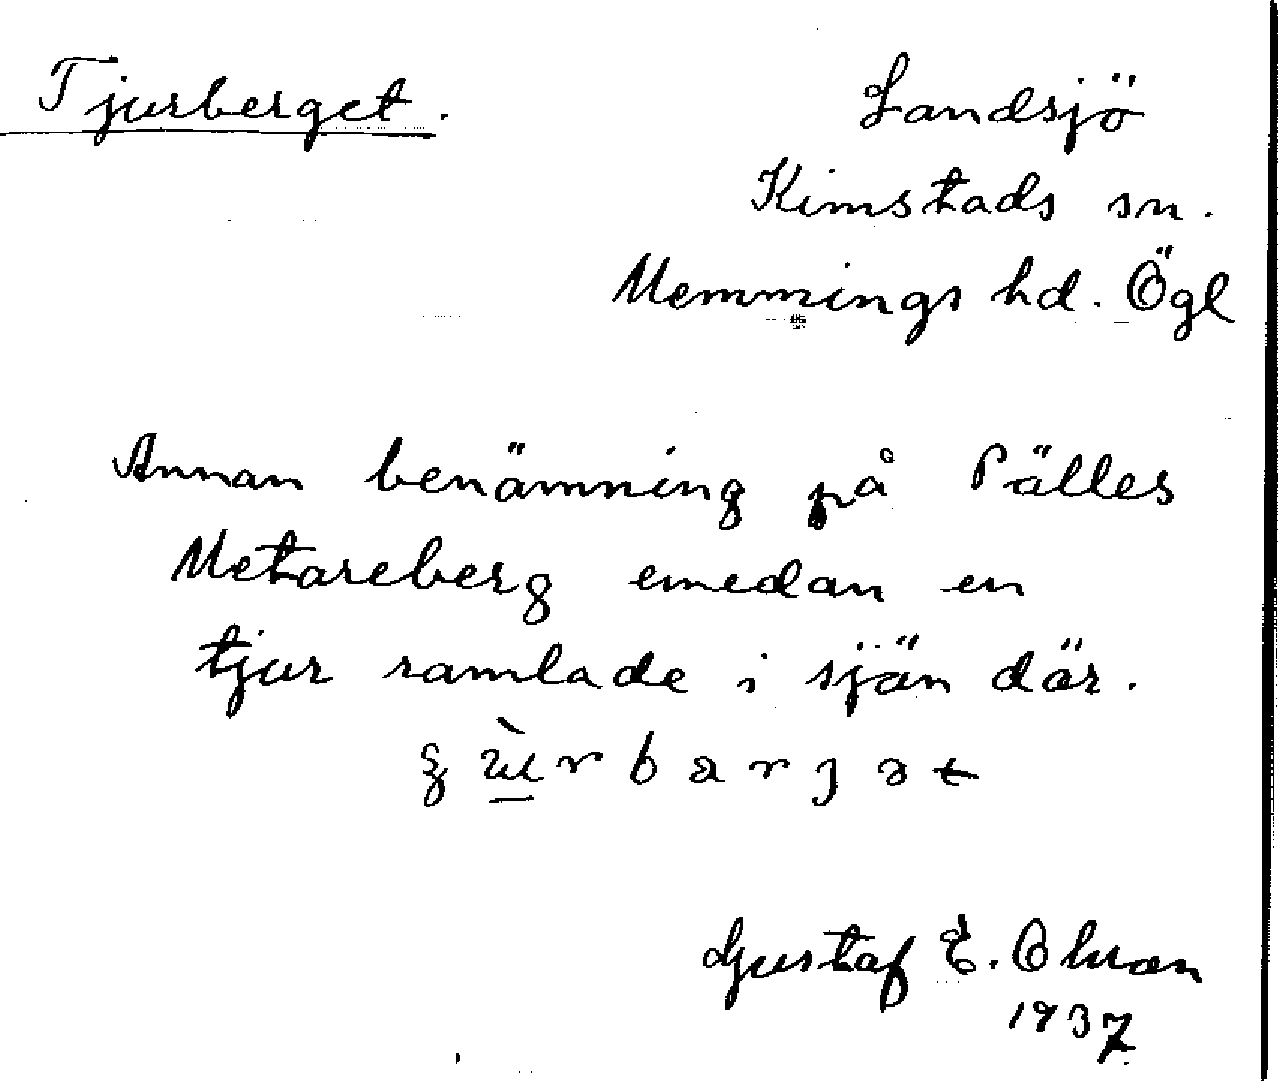 Tjurberget.
Landsjö
Kimstads sn.
Memmings hd. Ögl
Annan benämning på Pälles
Metareberg emedan en
tjur ramlade i sjön där.
Gustaf E. Ohman
1937